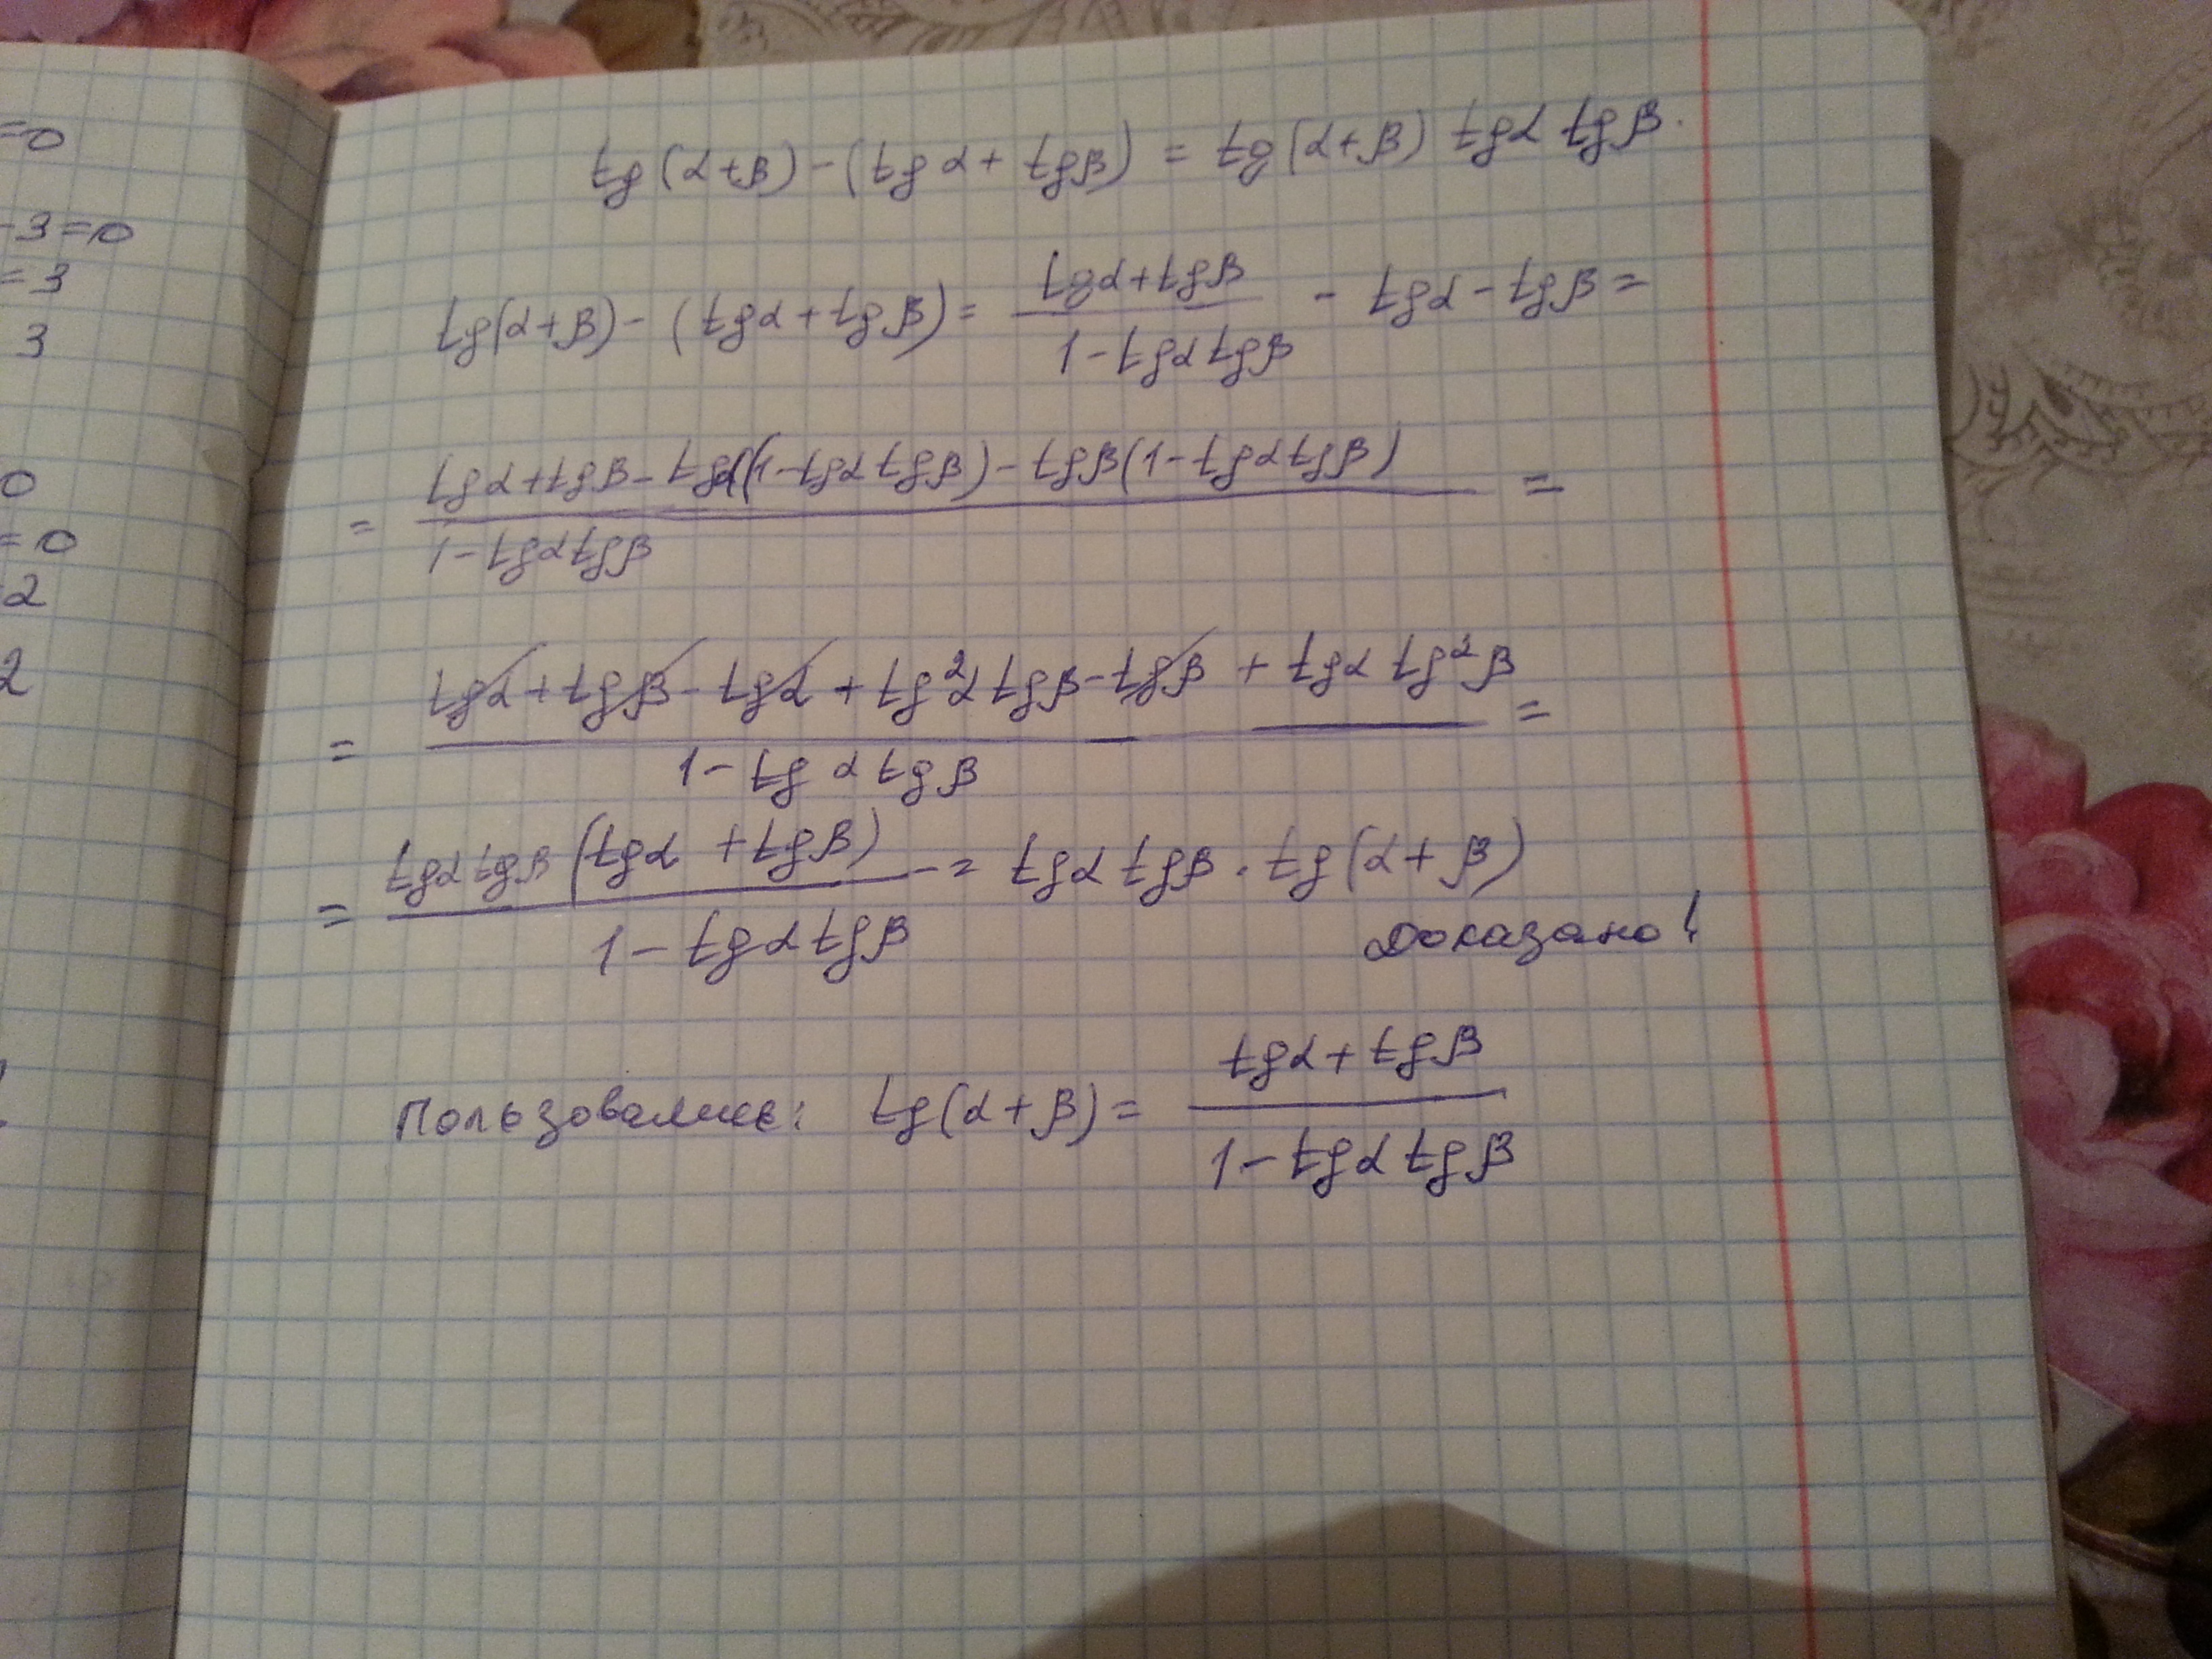 =0
-3=0
=3
3
0
=0
2
2
tg(α+β)-(tgα+tgβ)=tg(α+β) tgα tgβ.
tg(α+β)-(tgα+tgβ)= (tgα+tgβ)/(1-tgα tgβ) - tgα-tgβ=
= (tgα+tgβ-tgα(1-tgα tgβ)-tgβ(1-tgα tgβ))/(1-tgα tgβ) =
= (tgα+tgβ-tgα+tg²α tgβ-tgβ+tgα tg²β)/(1-tgα tgβ) =
= (tgα tgβ(tgα+tgβ))/(1-tgα tgβ) = tgα tgβ · tg(α+β)
Доказано!
Пользовались: tg(α+β)= (tgα+tgβ)/(1-tgα tgβ)